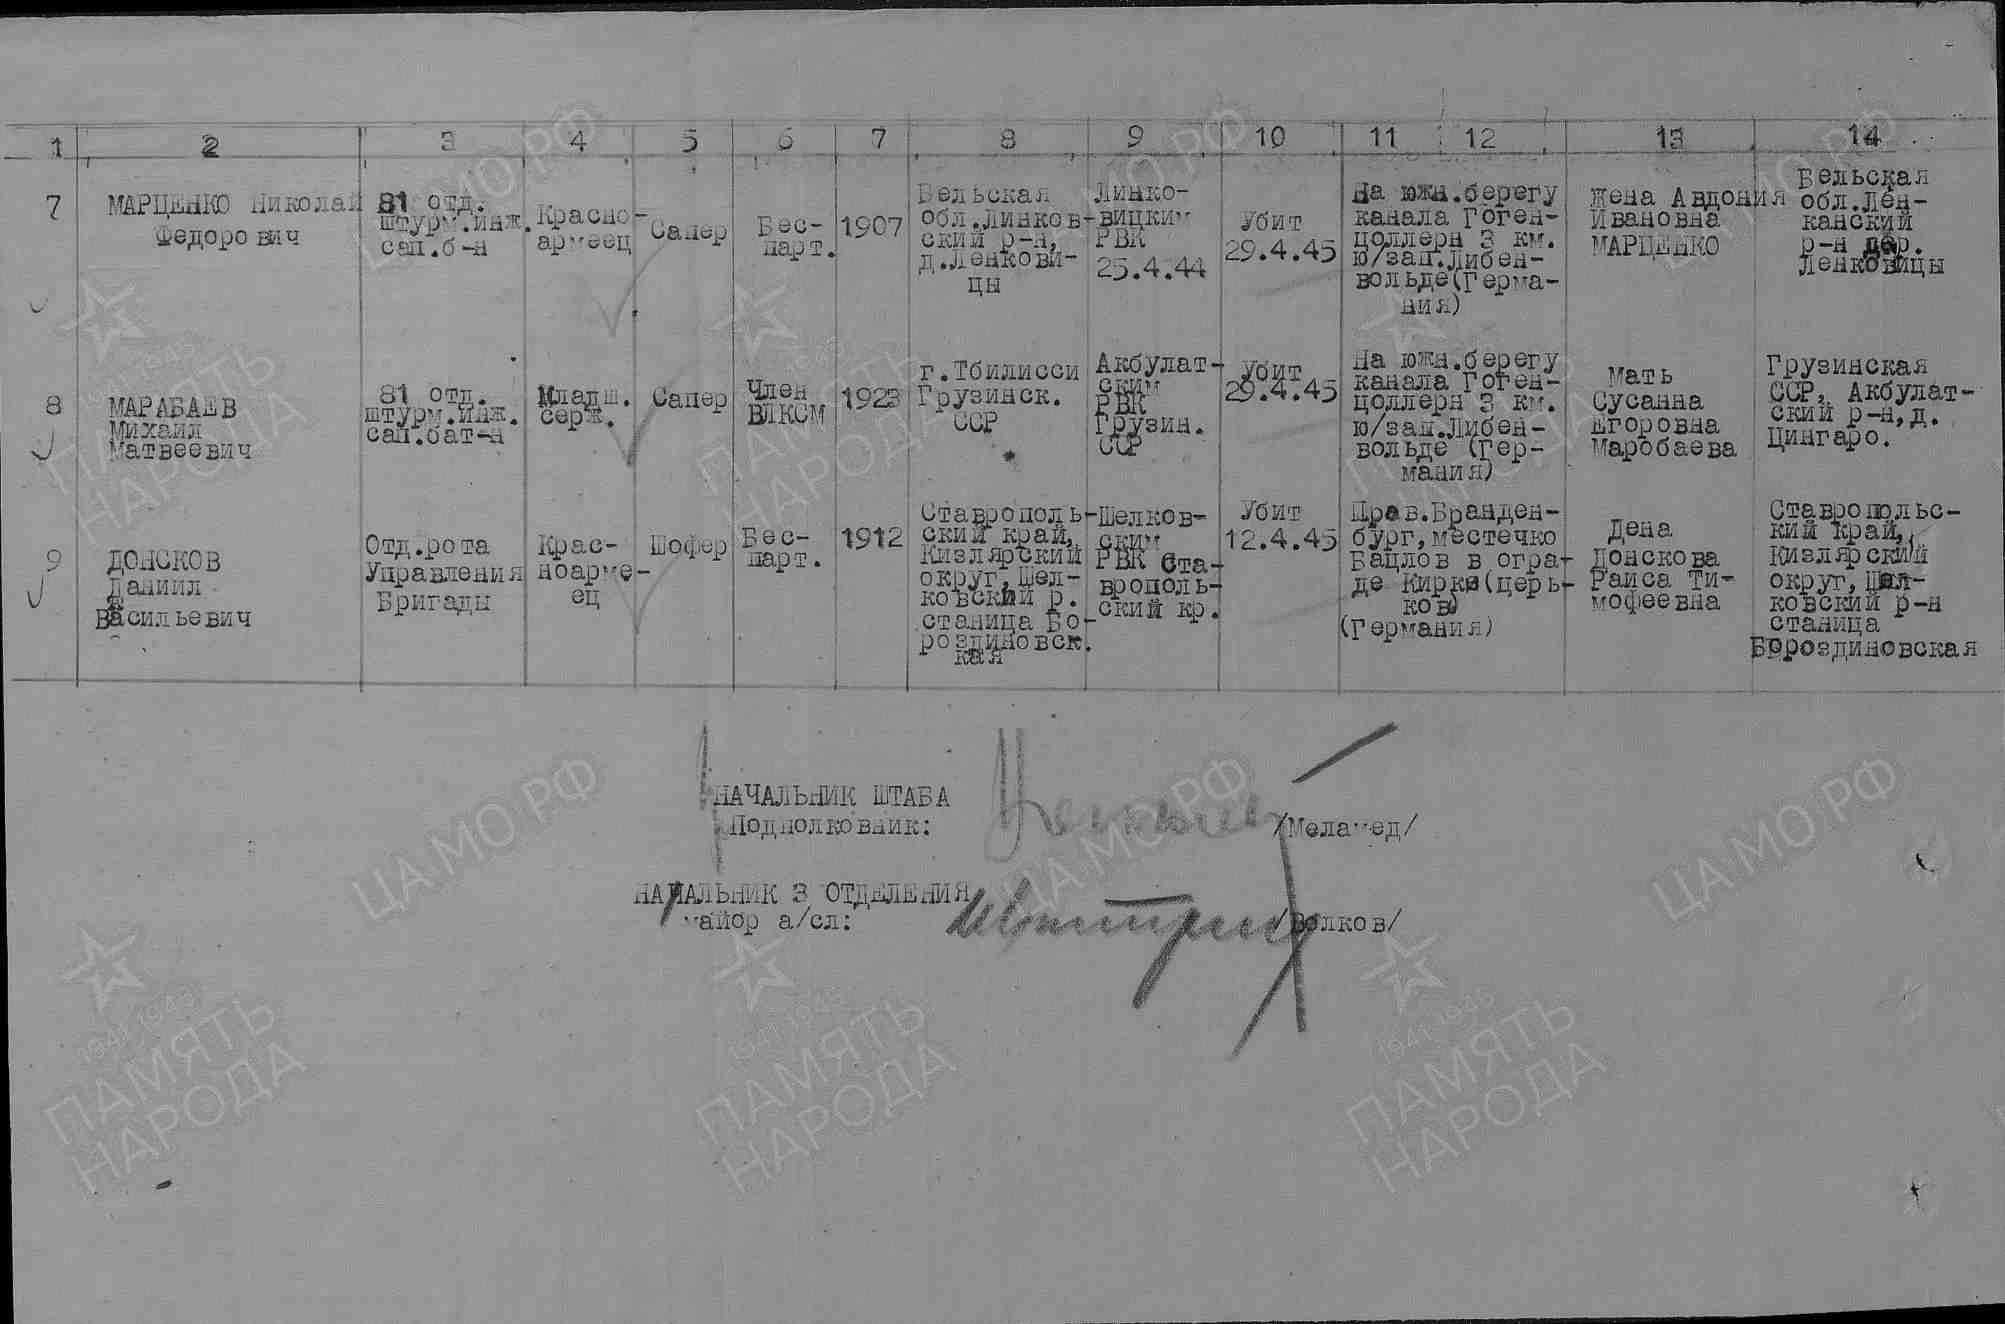 1 2 3 4 5 6 7 8 9 10 11 12 13 14
7
МАРЦЕНКО Николай
Федорович
81 отд.
штурм.инж.
сап.б-н
Красно-
армеец
Сапер
Бес-
парт.
1907
Бельская
обл.Линков-
ский р-н,
д.Ленкови-
цы
Линко-
вицким
РВК
25.4.44
Убит
29.4.45
На южн.берегу
канала Гоген-
цоллерн 3 км.
ю/зап.Либен-
вольде(Герма-
ния)
Жена Авдония
Ивановна
МАРЦЕНКО
Бельская
обл.Лен-
канский
р-н дер.
Ленковицы
8
МАРАБАЕВ
Михаил
Матвеевич
81 отд.
штурм.инж.
сап.бат-н
Младш.
серж.
Сапер
Член
ВЛКСМ
1923
г.Тбилисси
Грузинск.
ССР
Акбулат-
ским
РВК
Грузин.
ССР
Убит
29.4.45
На южн.берегу
канала Гоген-
цоллерн 3 км.
ю/зап.Либен-
вольде (Гер-
мания)
Мать
Сусанна
Егоровна
Маробаева
Грузинская
ССР, Акбулат-
ский р-н,д.
Цингаро.
9
ДОНСКОВ
Даниил
Васильевич
Отд.рота
Управления
Бригады
Крас-
ноарме-
ец
Шофер
Бес-
парт.
1912
Ставрополь-
ский край,
Кизлярский
округ,Шел-
ковский р.
станица Бо-
роздиновск.
кая
Шелков-
ским
РВК Ста-
врополь-
ский кр.
Убит
12.4.45
Пров.Бранден-
бург,местечко
Бацлов в огра-
де Кирки(церь-
ков)
(Германия)
Дена
Донскова
Раиса Ти-
мофеевна
Ставропольс-
кий край,
Кизлярский
округ,Шел-
ковский р-н
станица
Бороздиновская
НАЧАЛЬНИК ШТАБА
Подполковник:
/Меламед/
НАЧАЛЬНИК 3 ОТДЕЛЕНИЯ
майор а/сл:
/Волков/
ЦА МО РФ
ЦА МО РФ
ЦА МО РФ
1941 1945
ПАМЯТЬ
НАРОДА
1941 1945
ПАМЯТЬ
НАРОДА
1941 1945
ПАМЯТЬ
НАРОДА
ЦА МО РФ
ЦА МО РФ
ЦА МО РФ
1941 1945
ПАМЯТЬ
НАРОДА
1941 1945
ПАМЯТЬ
НАРОДА
1941 1945
ПАМЯТЬ
НАРОДА